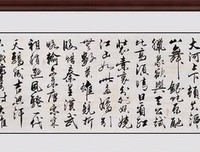 大河上下顿失滔
山舞银蛇
象欲与天公
比高须晴日看红
装素裹分外妖娆
江山如此多娇
无数英雄竞折
腰惜秦皇汉武
略输文采唐宗宋
祖稍逊风骚一代
天骄成吉思汗